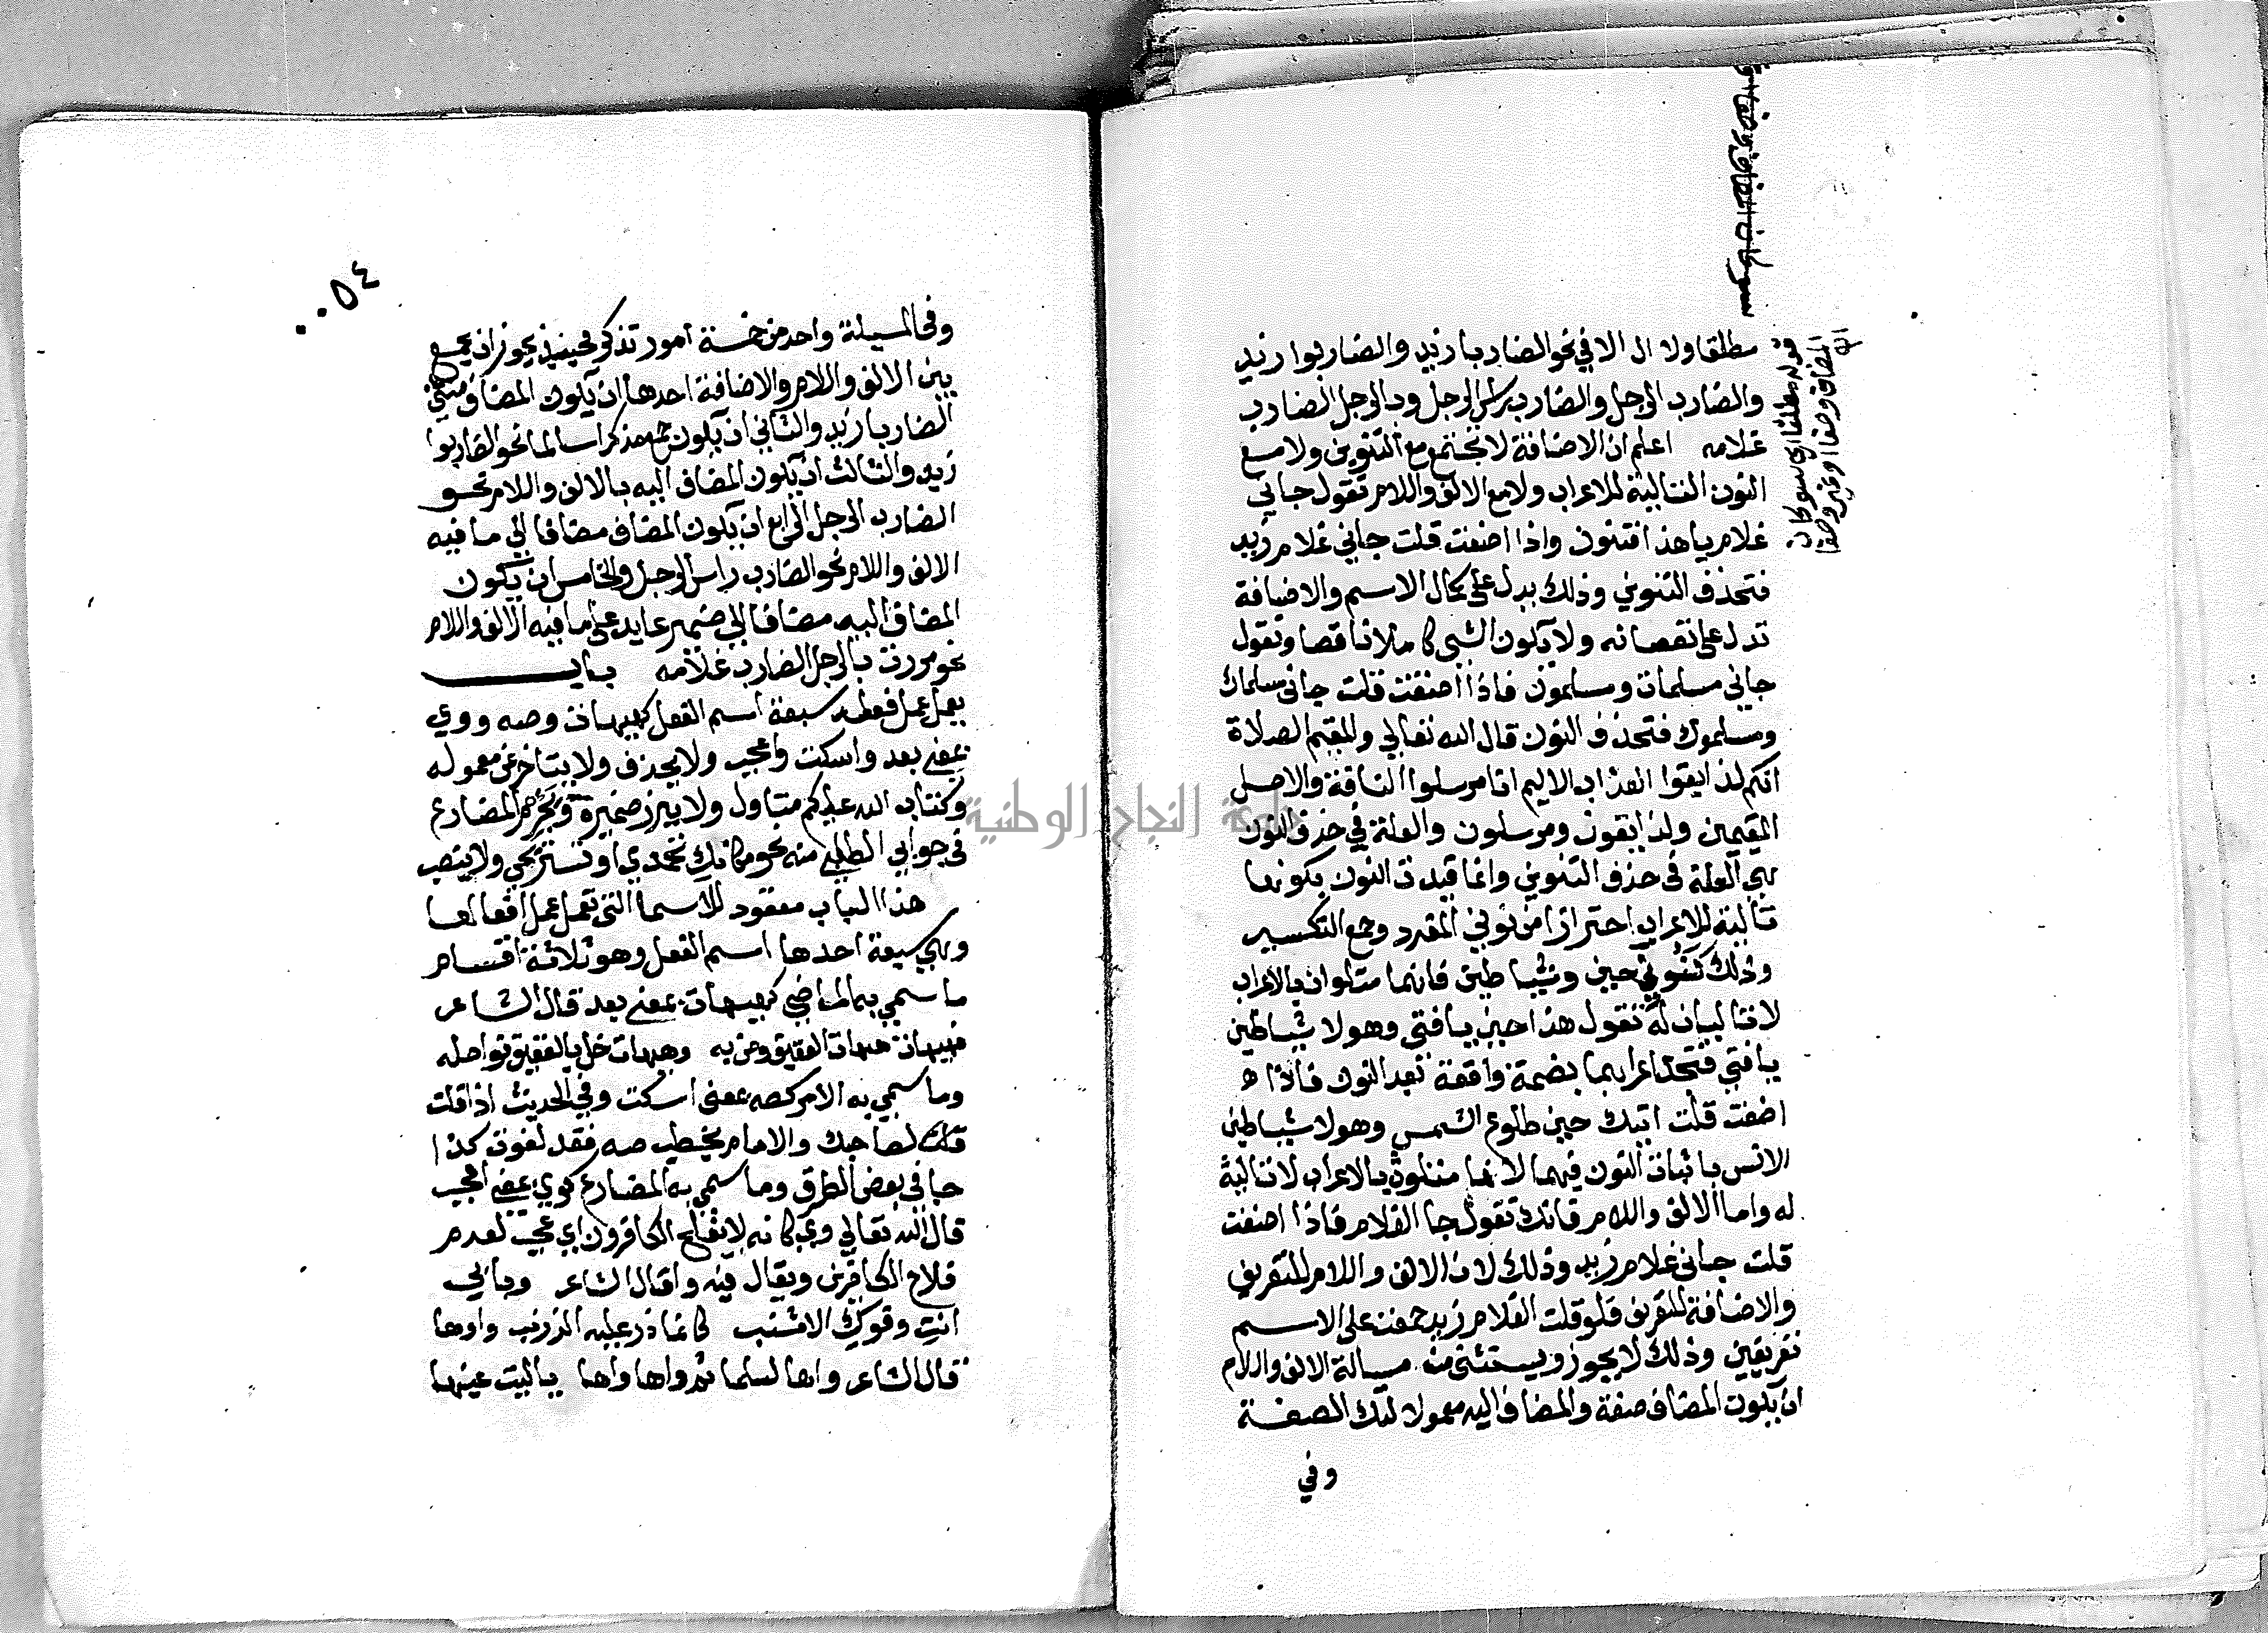 مطلقا ولا ال الا في نحو الضاربا زيد والضاربوا زيد
والضارب الرجل والضارب راس الرجل وبالرجل الضارب
غلامه اعلم ان الاضافة لا تجتمع مع التنوين ولا مع
النون التالية للاعراب ولا مع الالف واللام تقول جاني
غلام يا هذا فتنون واذا اضفت قلت جاني غلام زيد
فتحذف التنوين وذلك يدل على كمال الاسم والاضافة
تدل على نقصانه ولا يكون الشي كاملا ناقصا وتقول
جاني مسلمان ومسلمون فاذا اضفت قلت جاني مسلماك
ومسلموك فتحذف النون قال الله تعالي والمقيم الصلاة
انكم لذايقوا العذاب الاليم انا مرسلوا الناقة والاصل
المقيمين ولذايقون ومرسلون والعلة في حذف النون
هي العلة في حذف التنوين وانما قيدت النون بكونها
تالية للاعراب احترازا من نوني المفرد وجمع التكسير
وذلك كنوني حين وشياطين فانهما متلوان بالاعراب
لا تاليان له تقول هذا حين يا فتي وهولا شياطين
يا فتي فتجد اعرابهما بضمة واقعة بعد النون فاذا
اضفت قلت اتيك حين طلوع الشمس وهولا شياطين
الانس باثبات النون فيهما لانها متلوة بالاعراب لا تالية
له واما الالف واللام فانك تقول جا الغلام فاذا اضفت
قلت جاني غلام زيد وذلك لان الالف واللام للتعريف
والاضافة للتعريف فلو قلت الغلام زيد جمعت علي الاسم
تعريفين وذلك لا يجوز ويستثني من مسالة الالف واللام
ان يكون المضاف صفة والمضاف اليه معمولا لتلك الصفة
وفي
قوله مطلقا اي سوا كان
المضاف وصفا او غير وصفا
وفي المسيلة واحد من خمسة امور تذكر فحينيذ يجوز ان يجمع
بين الالف واللام والاضافة احدها ان يكون المضاف مثني
الضاربا زيد والثاني ان يكون جمع مذكرا سالما نحو الضاربوا
زيد والثالث ان يكون المضاف اليه بالالف واللام نحو
الضارب الرجل الرابع ان يكون المضاف مضافا الي ما فيه
الالف واللام نحو الضارب راس الرجل والخامس ان يكون
المضاف اليه مضافا الي ضمير عايد علي ما فيه الالف واللام
نحو مررت بالرجل الضارب غلامه باب
يعمل عمل فعله سبعة اسم الفعل كهيهات وصه ووي
بمعني بعد واسكت واعجب ولا يحذف ولا يتاخر عن معموله
وكتاب الله عليكم متاول ولا يبرز ضميره ويجزم المضارع
في جواب الطلبي منه نحو مكانك تحمدي او تستريحي ولا ينصب
هذا الباب معقود للاسما التي تعمل عمل افعالها
وهي سبعة احدها اسم الفعل وهو ثلاثة اقسام
ما سمي به الماضي كهيهات بمعني بعد قال الشاعر
فهيهات هيهات العقيق ومن به وهيهات خل بالعقيق نواصله
وما سمي به الامر كصه بمعني اسكت وفي الحديث اذا قلت
لصاحبك والامام يخطب صه فقد لغوت كذا
جا في بعض الطرق وما سمي به المضارع كوي بمعني اعجب
قال الله تعالي وي كانه لا يفلح الكافرون اي عجب لعدم
فلاح الكافرين ويقال فيه وا قال الشاعر وبابي
انت وفوك الاشنب كانما ذر عليه الزرنب وواها
قال الشاعر واها لسلما ثم واها واها يا ليت عينها
٠٠٥٤
جامعة النجاح الوطنية